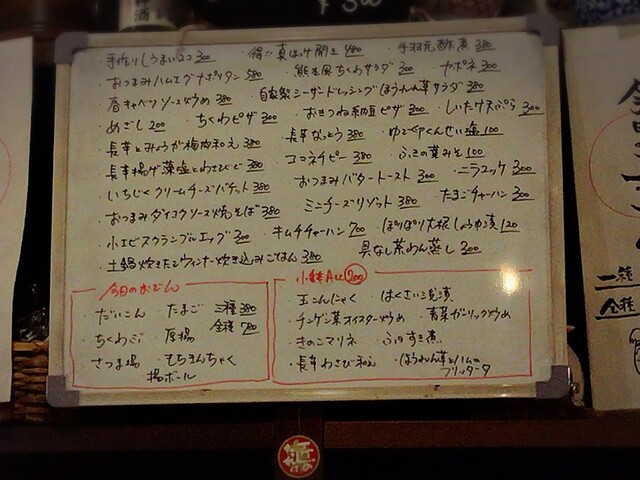 手作りしうまい2コ 300 得!! 真ほっけ開き 480 手羽元酢煮 380
おつまみハムエグナポリタン 580 熊本風ちくわサラダ 300 カポネ 300
春キャベツソース炒め 380 自家製シーザードレッシングほうれん草サラダ 380
めざし 200 ちくわピザ 300 おきつね納豆ピザ 300 しいたけ天ぷら 300
長芋とみょうが梅肉和え 380 長芋なっとう 380 ゆでくんせい塩 100
長芋揚げ藻塩とわさびで 380 ココネイピー 380 ふきの葉みそ 100
いちじくクリームチーズバゲット 380 おつまみバタートースト 300 ニラエッグ 300
おつまみダイコクソース焼そば 380 ミニチーズリゾット 380 たまごチャーハン 300
小エビスクランブルエッグ 300 キムチチャーハン 700 ぽりぽり大根しょうゆ漬 120
土鍋炊きたてウィンナー炊き込みごはん 380 具なし茶わん蒸し 300
今日のおでん
だいこん たまご 三種 380
全種 700
ちくわぶ 厚揚
さつま揚 もちきんちゃく
揚ボール
小鉢 ALL 200
玉こんにゃく はくさい漬
チンゲン菜オイスター炒め 青菜ガーリック炒め
きのこマリネ
長芋わさび和え ほうれん草とハムの
フリッタータ
一種
全種